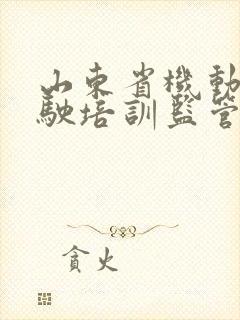 山東省機動
駛培訓監管
貪火